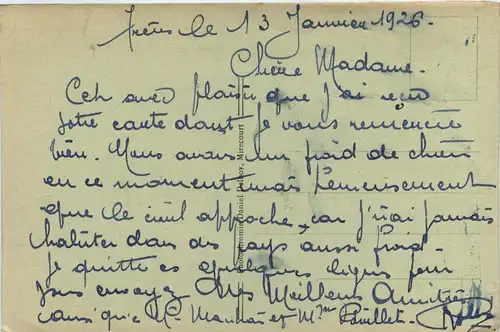 le 13 Janvier 1926.
Chère Madame.
C'est avec plaisir que j'ai reçu
votre carte dont je vous remercie
bien. Nous avons un froid de chien
en ce moment mais heureusement
que le civil approche, car j'irai jamais
habiter dans des pays aussi froid.
Je quitte ces quelques lignes pour
vous envoyez Mes Meilleurs Amitiés
ainsi qu'à Mr et Mme Paillet.
Daniel Mirecourt